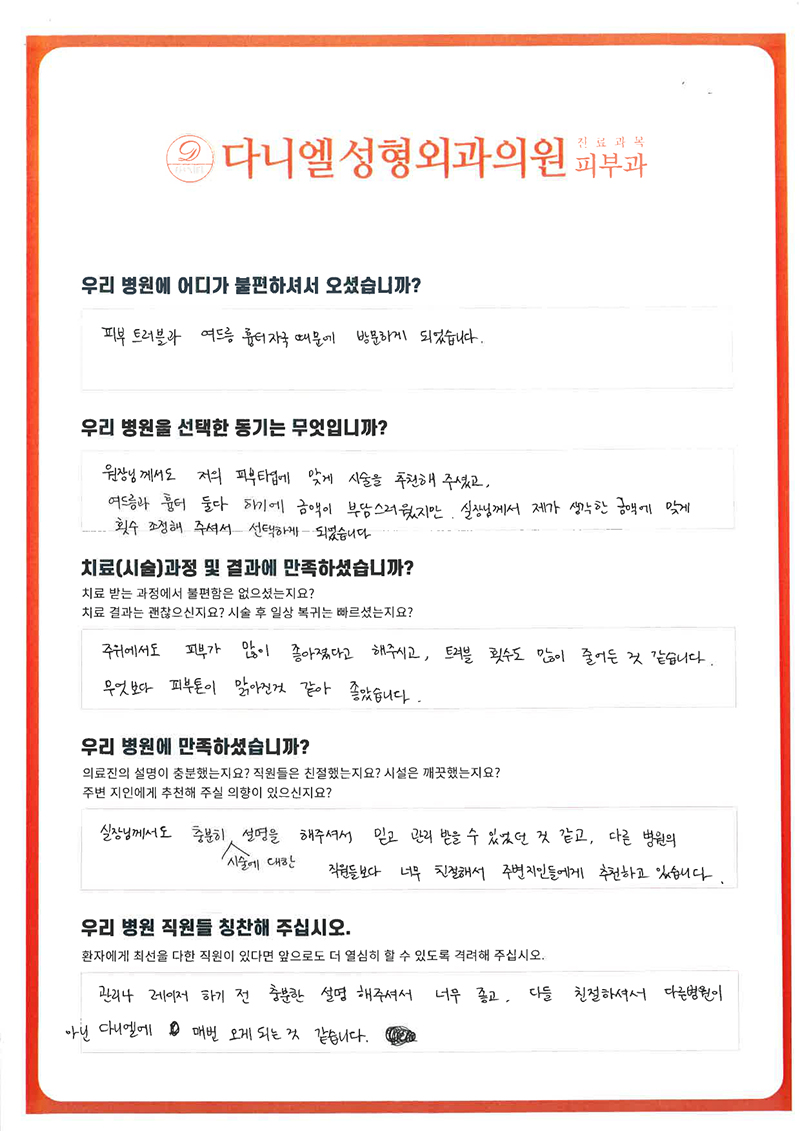 다니엘성형외과의원 진료과목 피부과
우리 병원에 어디가 불편하셔서 오셨습니까?
피부 트러블과 여드름 흉터자국 때문에 방문하게 되었습니다.
우리 병원을 선택한 동기는 무엇입니까?
원장님께서도 저의 피부타입에 맞게 시술을 추천해 주셨고,
여드름과 흉터 둘다 하기에 금액이 부담스러웠지만. 실장님께서 제가 생각한 금액에 맞게
횟수 조정해 주셔서 선택하게 되었습니다
치료(시술)과정 및 결과에 만족하셨습니까?
치료 받는 과정에서 불편함은 없으셨는지요?
치료 결과는 괜찮으신지요? 시술 후 일상 복귀는 빠르셨는지요?
주위에서도 피부가 많이 좋아졌다고 해주시고, 트러블 횟수도 많이 줄어든 것 같습니다.
무엇보다 피부톤이 맑아진것 같아 좋았습니다.
우리 병원에 만족하셨습니까?
의료진의 설명이 충분했는지요? 직원들은 친절했는지요? 시설은 깨끗했는지요?
주변 지인에게 추천해 주실 의향이 있으신지요?
실장님께서도 충분히 설명을 해주셔서 믿고 관리 받을 수 있었던 것 같고, 다른 병원의
시술에 대한
직원들보다 너무 친절해서 주변지인들에게 추천하고 있습니다.
우리 병원 직원들 칭찬해 주십시오.
환자에게 최선을 다한 직원이 있다면 앞으로도 더 열심히 할 수 있도록 격려해 주십시오.
관리나 레이저 하기 전 충분한 설명 해주셔서 너무 좋고, 다들 친절하셔서 다른병원이
아닌 다니엘에 매번 오게 되는 것 같습니다.